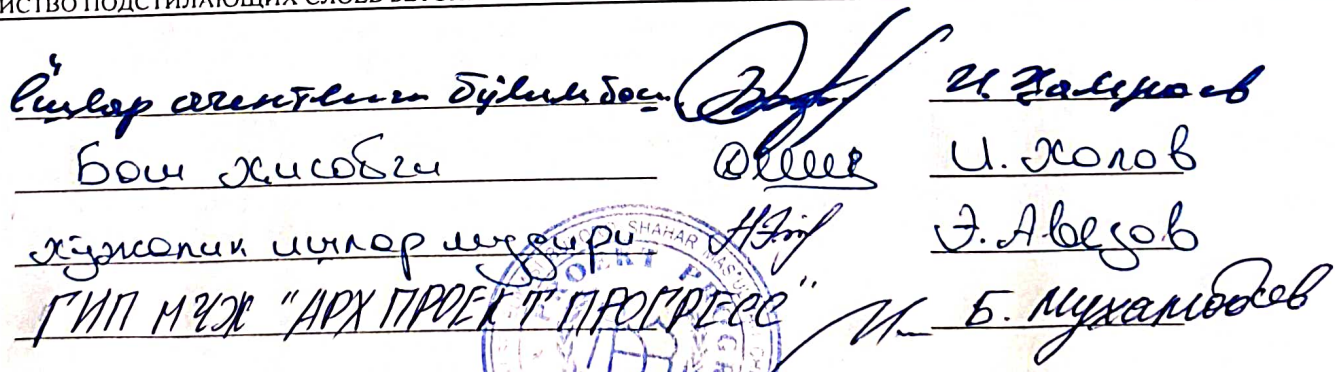 ПОДСТИЛАЮЩИХ СЛОЕВ
Ёшлар агентлиги бўлим бош. И. Ҳамраев
Бош ҳисобчи И. Холов
хўжалик ишлар мудири Э. Авезов
ГИП МЧЖ "АРХ ПРОЕКТ ПРОГРЕСС" Б. Мухамбов
SHAHAR